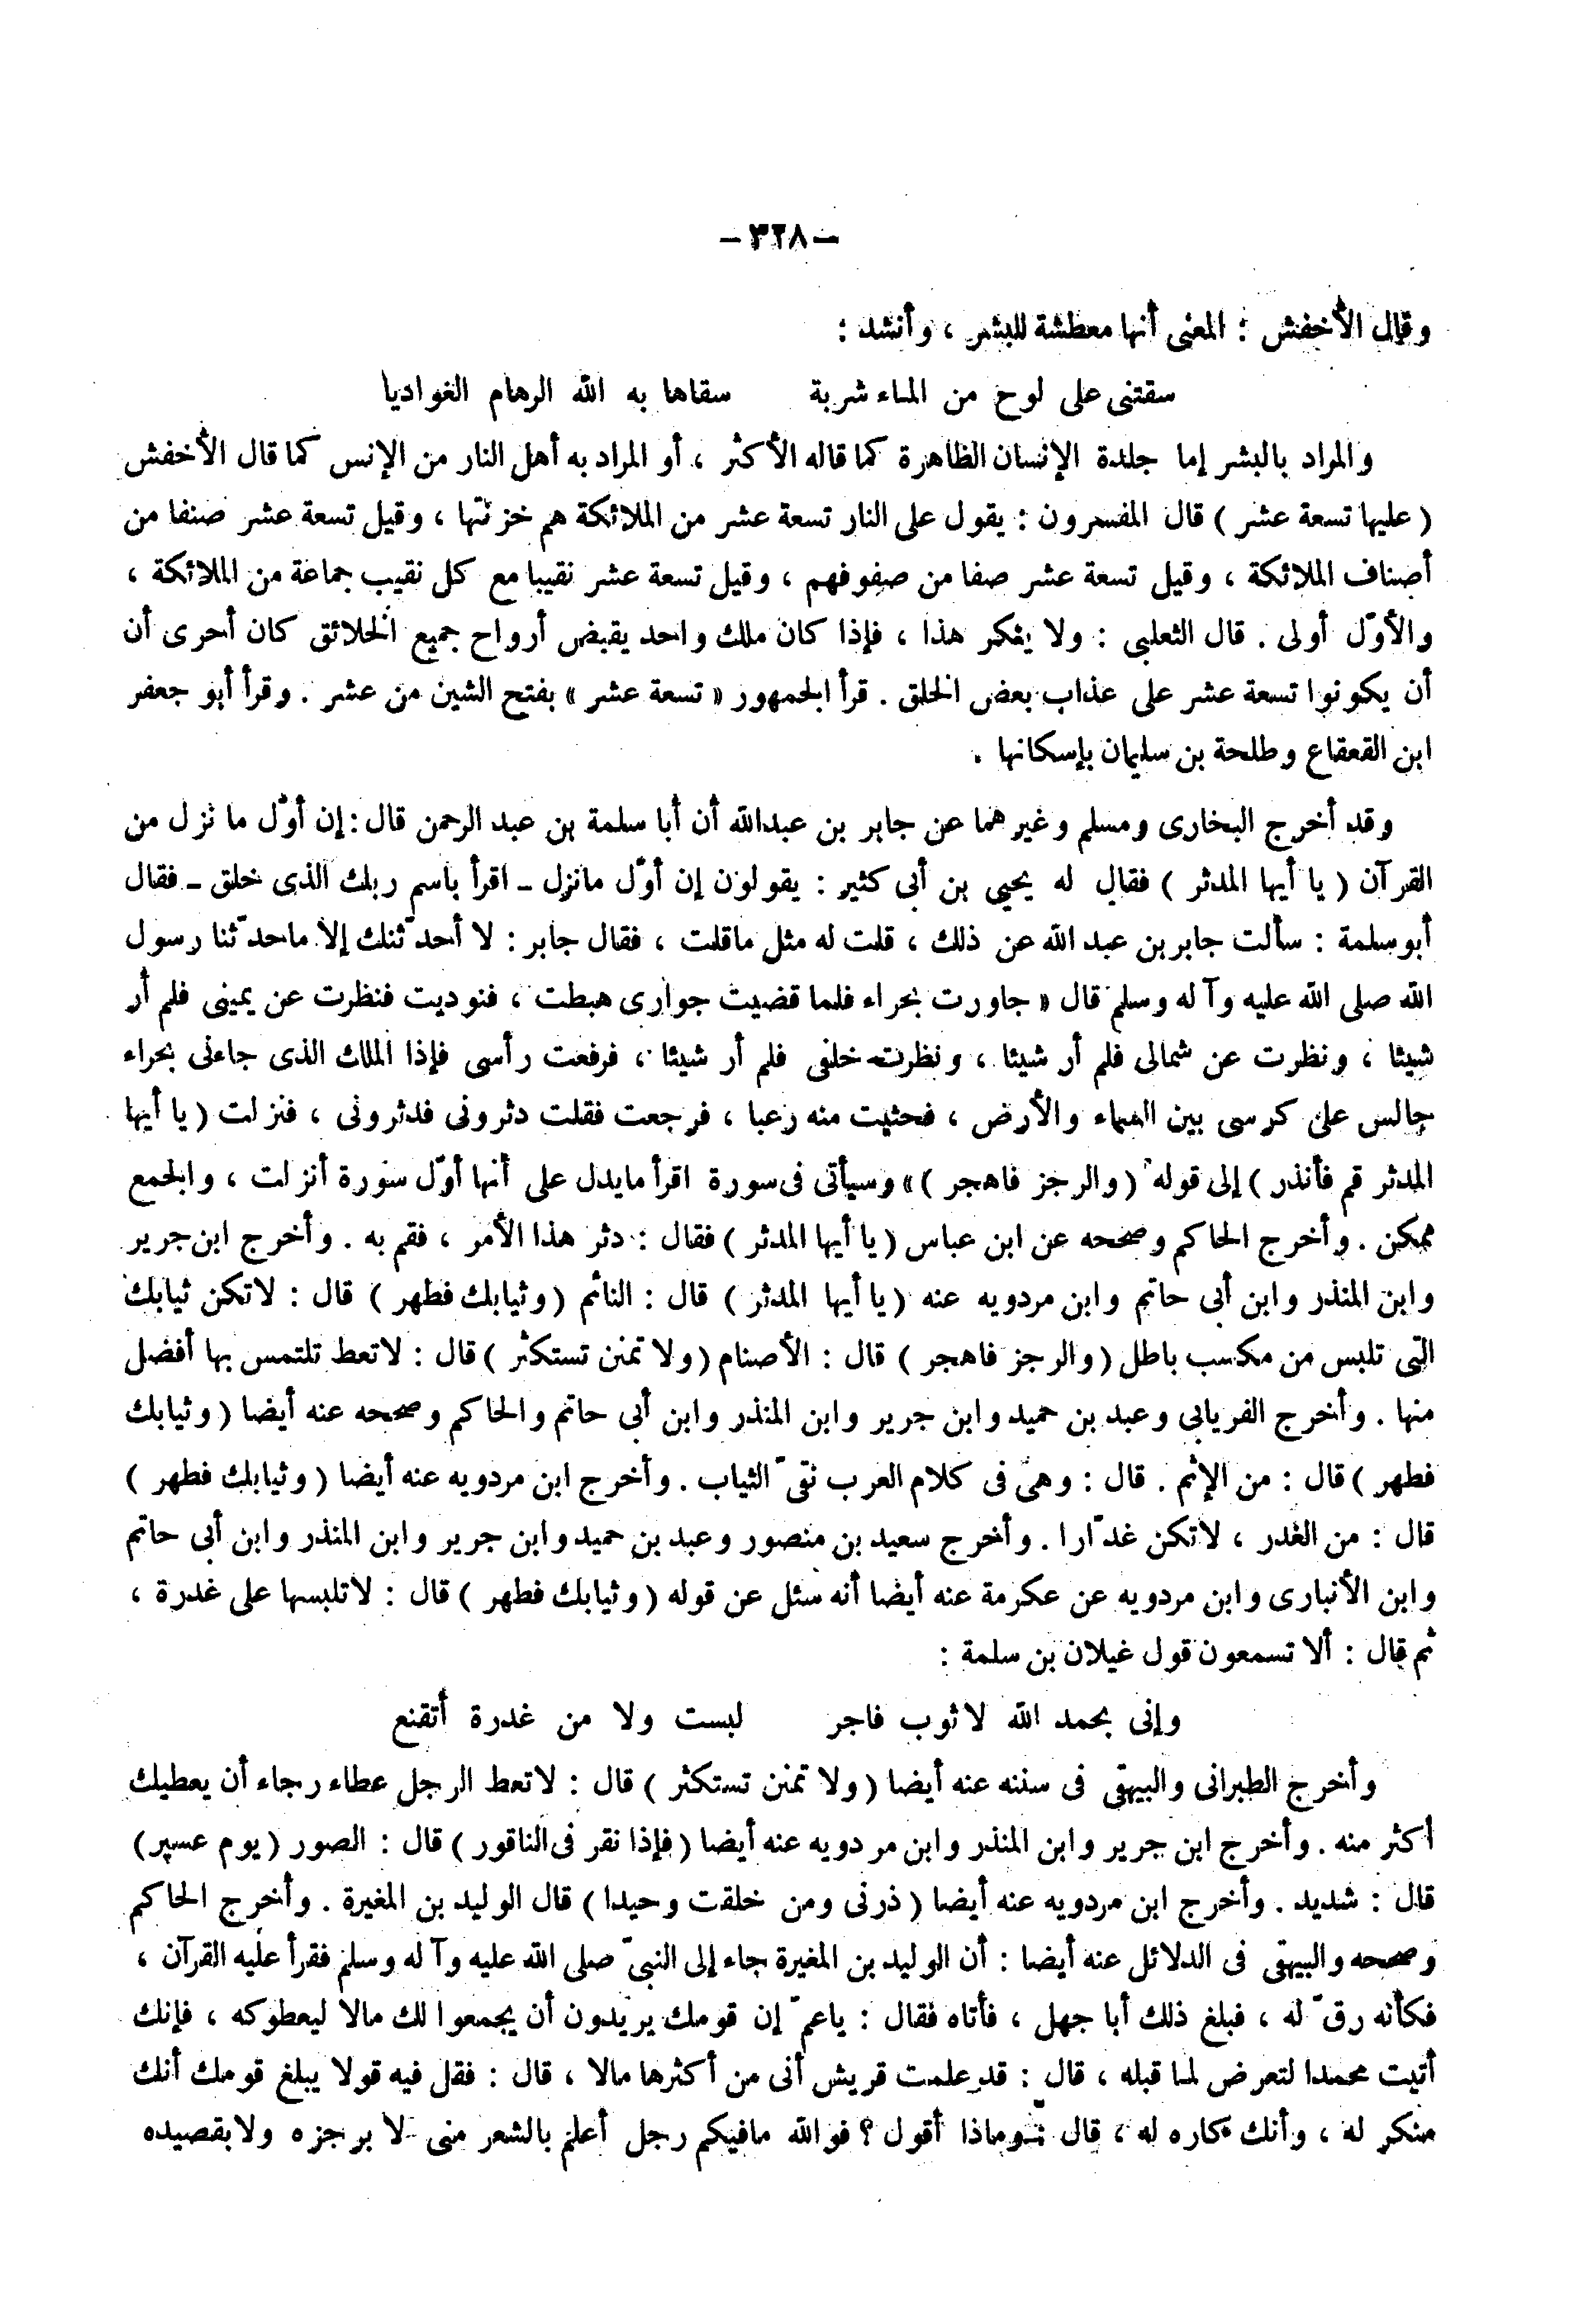 – ٣٢٨ –
وقال الأخفش : المعنى أنها معطشة للبشر ، وأنشد :
سقتنى على لوح من الماء شربة سقاها به الله الرهام الغواديا
والمراد بالبشر إما جلدة الإنسان الظاهرة كما قاله الأكثر ، أو المراد به أهل النار من الإنس كما قال الأخفش
( عليها تسعة عشر ) قال المفسرون : يقول على النار تسعة عشر من الملائكة هم خزنتها ، وقيل تسعة عشر صنفا من
أصناف الملائكة ، وقيل تسعة عشر صفا من صفوفهم ، وقيل تسعة عشر نقيبا مع كل نقيب جماعة من الملائكة ،
والأوّل أولى . قال الثعلبى : ولا ينكر هذا ، فإذا كان ملك واحد يقبض أرواح جميع الخلائق كان أحرى أن
أن يكونوا تسعة عشر على عذاب بعض الخلق . قرأ الجمهور « تسعة عشر » بفتح الشين من عشر . وقرأ أبو جعفر
ابن القعقاع وطلحة بن سليمان بإسكانها .
وقد أخرج البخارى ومسلم وغيرهما عن جابر بن عبدالله أن أبا سلمة بن عبد الرحمن قال : إن أوّل ما نزل من
القرآن ( يا أيها المدثر ) فقال له يحيى بن أبى كثير : يقولون إن أوّل مانزل ـ اقرأ باسم ربك الذى خلق ـ فقال
أبو سلمة : سألت جابر بن عبد الله عن ذلك ، قلت له مثل ماقلت ، فقال جابر : لا أحدّثنك إلا ماحدّثنا رسول
الله صلى الله عليه وآله وسلم قال « جاورت بحراء فلما قضيت جوارى هبطت ، فنوديت فنظرت عن يمينى فلم أر
شيئا ، ونظرت عن شمالى فلم أر شيئا ، ونظرت خلفى فلم أر شيئا ، فرفعت رأسى فإذا الملك الذى جاءنى بحراء
جالس على كرسى بين السماء والأرض ، فحثيت منه رعبا ، فرجعت فقلت دثرونى فدثرونى ، فنزلت ( يا أيها
المدثر قم فأنذر ) إلى قوله ( والرجز فاهجر ) » وسيأتى فى سورة اقرأ مايدل على أنها أوّل سورة أنزلت ، والجمع
ممكن . وأخرج الحاكم وصححه عن ابن عباس ( يا أيها المدثر ) فقال : دثر هذا الأمر ، فقم به . وأخرج ابن جرير
وابن المنذر وابن أبى حاتم وابن مردويه عنه ( يا أيها المدثر ) قال : النائم ( وثيابك فطهر ) قال : لاتكن ثيابك
التى تلبس من مكسب باطل ( والرجز فاهجر ) قال : الأصنام ( ولا تمنن تستكثر ) قال : لاتعط تلتمس بها أفضل
منها . وأخرج الفريابى وعبد بن حميد وابن جرير وابن المنذر وابن أبى حاتم والحاكم وصححه عنه أيضا ( وثيابك
فطهر ) قال : من الإثم . قال : وهى فى كلام العرب نقىّ الثياب . وأخرج ابن مردويه عنه أيضا ( وثيابك فطهر )
قال : من الغدر ، لاتكن غدّارا . وأخرج سعيد بن منصور وعبد بن حميد وابن جرير وابن المنذر وابن أبى حاتم
وابن الأنبارى وابن مردويه عن عكرمة عنه أيضا أنه سئل عن قوله ( وثيابك فطهر ) قال : لاتلبسها على غدرة ،
ثم قال : ألا تسمعون قول غيلان بن سلمة :
وإنى بحمد الله لا ثوب فاجر لبست ولا من غدرة أتقنع
وأخرج الطبرانى والبيهقى فى سننه عنه أيضا ( ولا تمنن تستكثر ) قال : لاتعط الرجل عطاء رجاء أن يعطيك
أكثر منه . وأخرج ابن جرير وابن المنذر وابن مردويه عنه أيضا ( فإذا نقر فى الناقور ) قال : الصور ( يوم عسير )
قال : شديد . وأخرج ابن مردويه عنه أيضا ( ذرنى ومن خلقت وحيدا ) قال الوليد بن المغيرة . وأخرج الحاكم
وصححه والبيهقى فى الدلائل عنه أيضا : أن الوليد بن المغيرة جاء إلى النبىّ صلى الله عليه وآله وسلم فقرأ عليه القرآن ،
فكأنه رقّ له ، فبلغ ذلك أبا جهل ، فأتاه فقال : ياعمّ إن قومك يريدون أن يجمعوا لك مالا ليعطوكه ، فإنك
أتيت محمدا لتعرض لما قبله ، قال : قد علمت قريش أنى من أكثرها مالا ، قال : فقل فيه قولا يبلغ قومك أنك
منكر له ، وأنك كاره له ، قال : وماذا أقول ؟ فوالله مافيكم رجل أعلم بالشعر منى لا برجزه ولا بقصيده